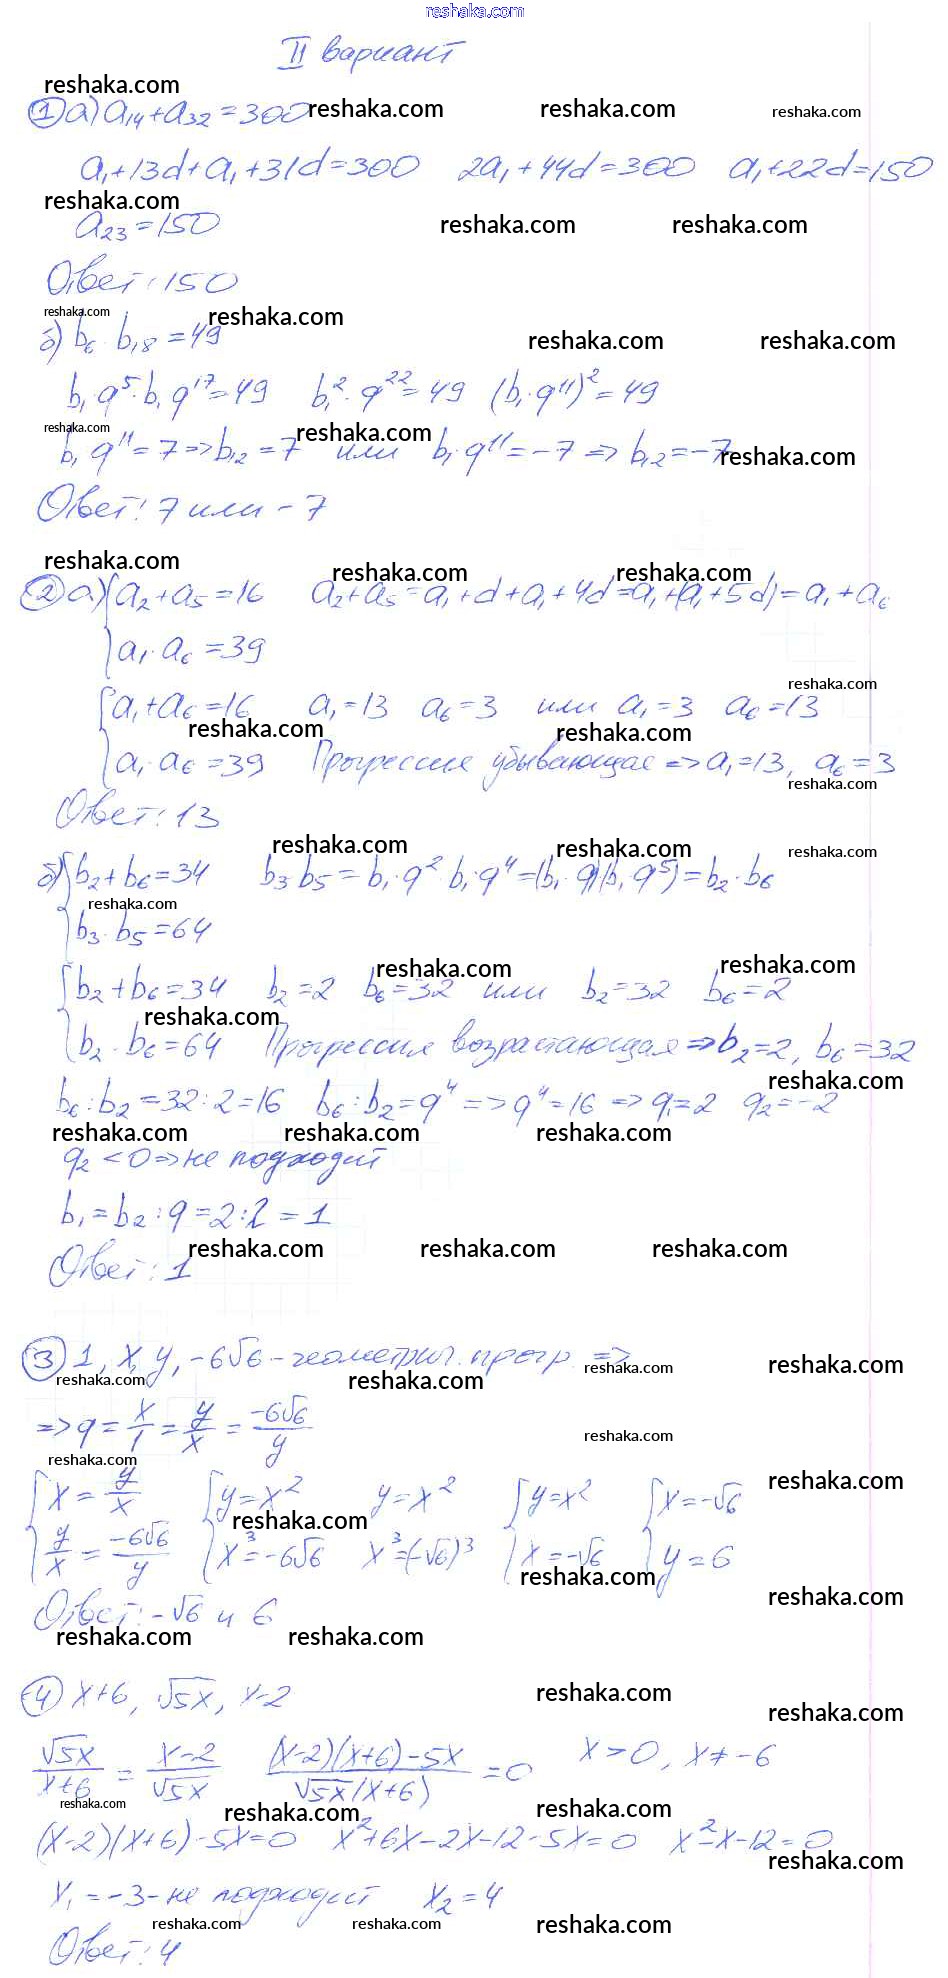 reshaka.com
II вариант
reshaka.com
① а) a₁₄+a₃₂=300 reshaka.com reshaka.com reshaka.com
a₁+13d+a₁+31d=300 2a₁+44d=300 a₁+22d=150
reshaka.com
a₂₃=150 reshaka.com reshaka.com
Ответ: 150
reshaka.com reshaka.com
б) b₆·b₁₈=49 reshaka.com reshaka.com
b₁·q⁵·b₁q¹⁷=49 b₁²·q²²=49 (b₁·q¹¹)²=49
reshaka.com reshaka.com
b₁q¹¹=7=>b₁₂=7 или b₁·q¹¹=-7=>b₁₂=-7 reshaka.com
Ответ: 7 или -7
reshaka.com reshaka.com reshaka.com
② а) { a₂+a₅=16 a₂+a₅=a₁+d+a₁+4d=a₁+(a₁+5d)=a₁+a₆
a₁·a₆=39
reshaka.com
{ a₁+a₆=16 a₁=13 a₆=3 или a₁=3 a₆=13
reshaka.com reshaka.com
a₁·a₆=39 Прогрессия убывающая=>a₁=13, a₆=3
reshaka.com
Ответ: 13
reshaka.com reshaka.com reshaka.com
б) { b₂+b₆=34 b₃·b₅=b₁·q²·b₁·q⁴=(b₁·q)(b₁·q⁵)=b₂·b₆
reshaka.com
b₃·b₅=64
reshaka.com reshaka.com
{ b₂+b₆=34 b₂=2 b₆=32 или b₂=32 b₆=2
reshaka.com
b₂·b₆=64 Прогрессия возрастающая=>b₂=2, b₆=32
reshaka.com
b₆:b₂=32:2=16 b₆:b₂=q⁴=>q⁴=16=>q₁=2 q₂=-2
reshaka.com reshaka.com reshaka.com
q₂<0=>не подходит
b₁=b₂:q=2:2=1
reshaka.com reshaka.com reshaka.com
Ответ: 1
③ 1, x, y, -6√6 - геометрич. прогр. =>
reshaka.com reshaka.com reshaka.com reshaka.com
=>q=x/1=y/x=-6√6/y
reshaka.com
reshaka.com reshaka.com
{ x=y/x { y=x² y=x² { y=x² { x=-√6
reshaka.com
y/x=-6√6/y x³=-6√6 x³=(-√6)³ x=-√6 y=6
reshaka.com
reshaka.com
Ответ: -√6 и 6
reshaka.com reshaka.com
④ x+6, √5x, x-2 reshaka.com
reshaka.com
√5x/x+6=x-2/√5x (x-2)(x+6)-5x/√5x(x+6)=0 x>0, x≠-6
reshaka.com reshaka.com reshaka.com
(x-2)(x+6)-5x=0 x²+6x-2x-12-5x=0 x²-x-12=0
reshaka.com
x₁=-3-не подходит x₂=4
reshaka.com reshaka.com reshaka.com
Ответ: 4